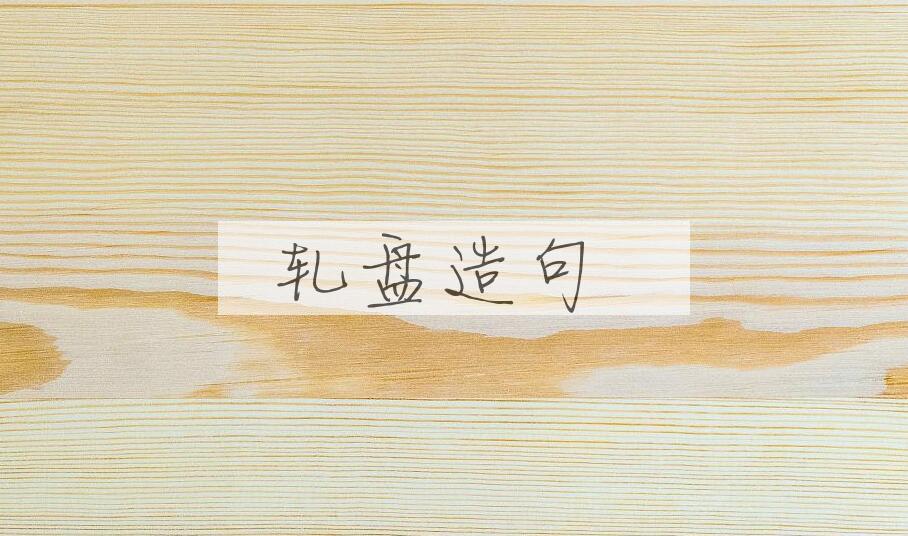 轧盘造句